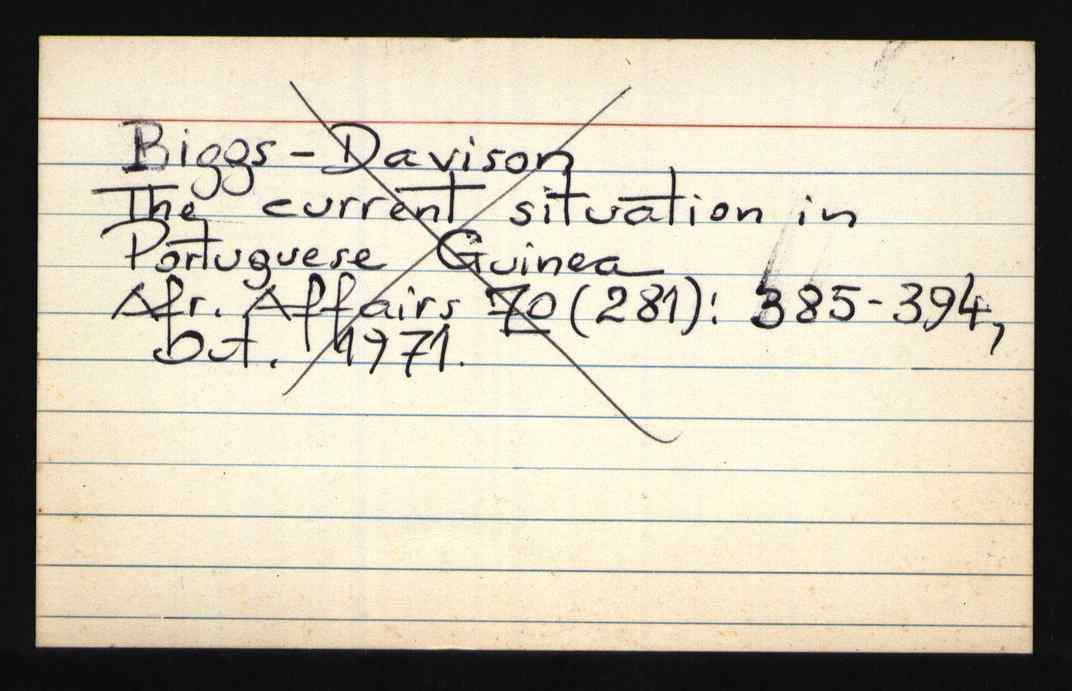 Biggs-Davison
The current situation in
Portuguese Guinea
Afr. Affairs 70(281): 385-394,
out. 1971.